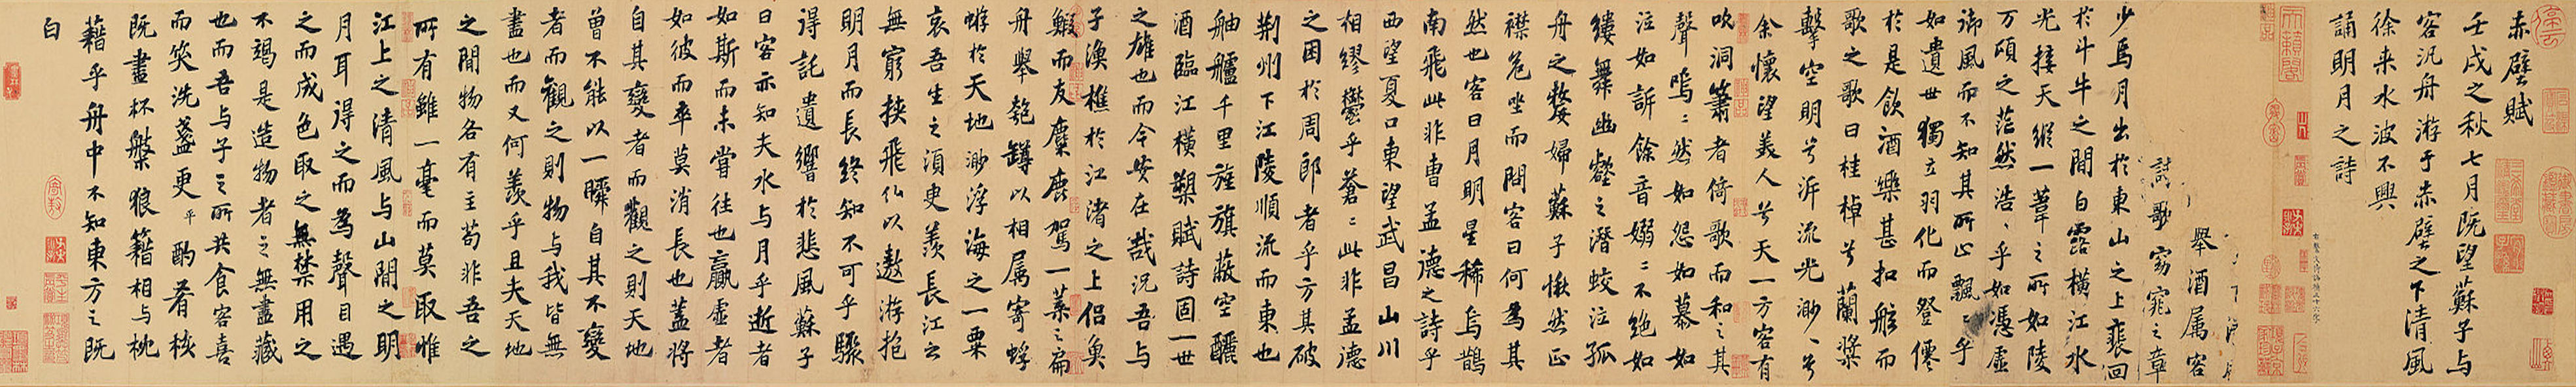 赤壁賦
壬戌之秋七月既望蘇子与
客汎舟游于赤壁之下清風
徐来水波不興
誦明月之詩
舉酒属客
詩歌窈窕之章
少焉月出於東山之上裴回
於斗牛之間白露橫江水
光接天縱一葦之所如陵
万頃之茫然浩〻乎如憑虛
御風而不知其所止飄〻乎
如遺世獨立羽化而登僊
於是飲酒樂甚扣舷而
歌之歌曰桂棹兮蘭槳
擊空明兮泝流光渺〻兮
余懷望美人兮天一方客有
吹洞簫者倚歌而和之其
聲嗚〻然如怨如慕如
泣如訴餘音嫋〻不絕如
縷舞幽壑之潛蛟泣孤
舟之嫠婦蘇子愀然正
襟危坐而問客曰何為其
然也客曰月明星稀烏鵲
南飛此非曹孟德之詩乎
西望夏口東望武昌山川
相繆鬱乎蒼〻此非孟德
之困於周郎者乎方其破
荊州下江陵順流而東也
舳艫千里旌旗蔽空釃
酒臨江橫槊賦詩固一世
之雄也而今安在哉況吾与
子漁樵於江渚之上侶魚
鰕而友麋鹿駕一葉之扁
舟舉匏罇以相属寄蜉
蝣於天地渺浮海之一粟
哀吾生之湏臾羨長江之
無窮挾飛仙以遨游抱
明月而長終知不可乎驟
得託遺響於悲風蘇子
曰客亦知夫水与月乎逝者
如斯而未甞往也贏虛者
如彼而卒莫消長也蓋將
自其變者而觀之則天地
曾不能以一瞬自其不變
者而觀之則物与我皆無
盡也而又何羨乎且夫天地
之間物各有主苟非吾之
所有雖一毫而莫取惟
江上之清風与山間之明
月耳得之而為聲目遇
之而成色取之無禁用之
不竭是造物者之無盡藏
也而吾与子之所共食客喜
而笑洗盞更酌肴核
既盡杯盤狼籍相与枕
藉乎舟中不知東方之既
白